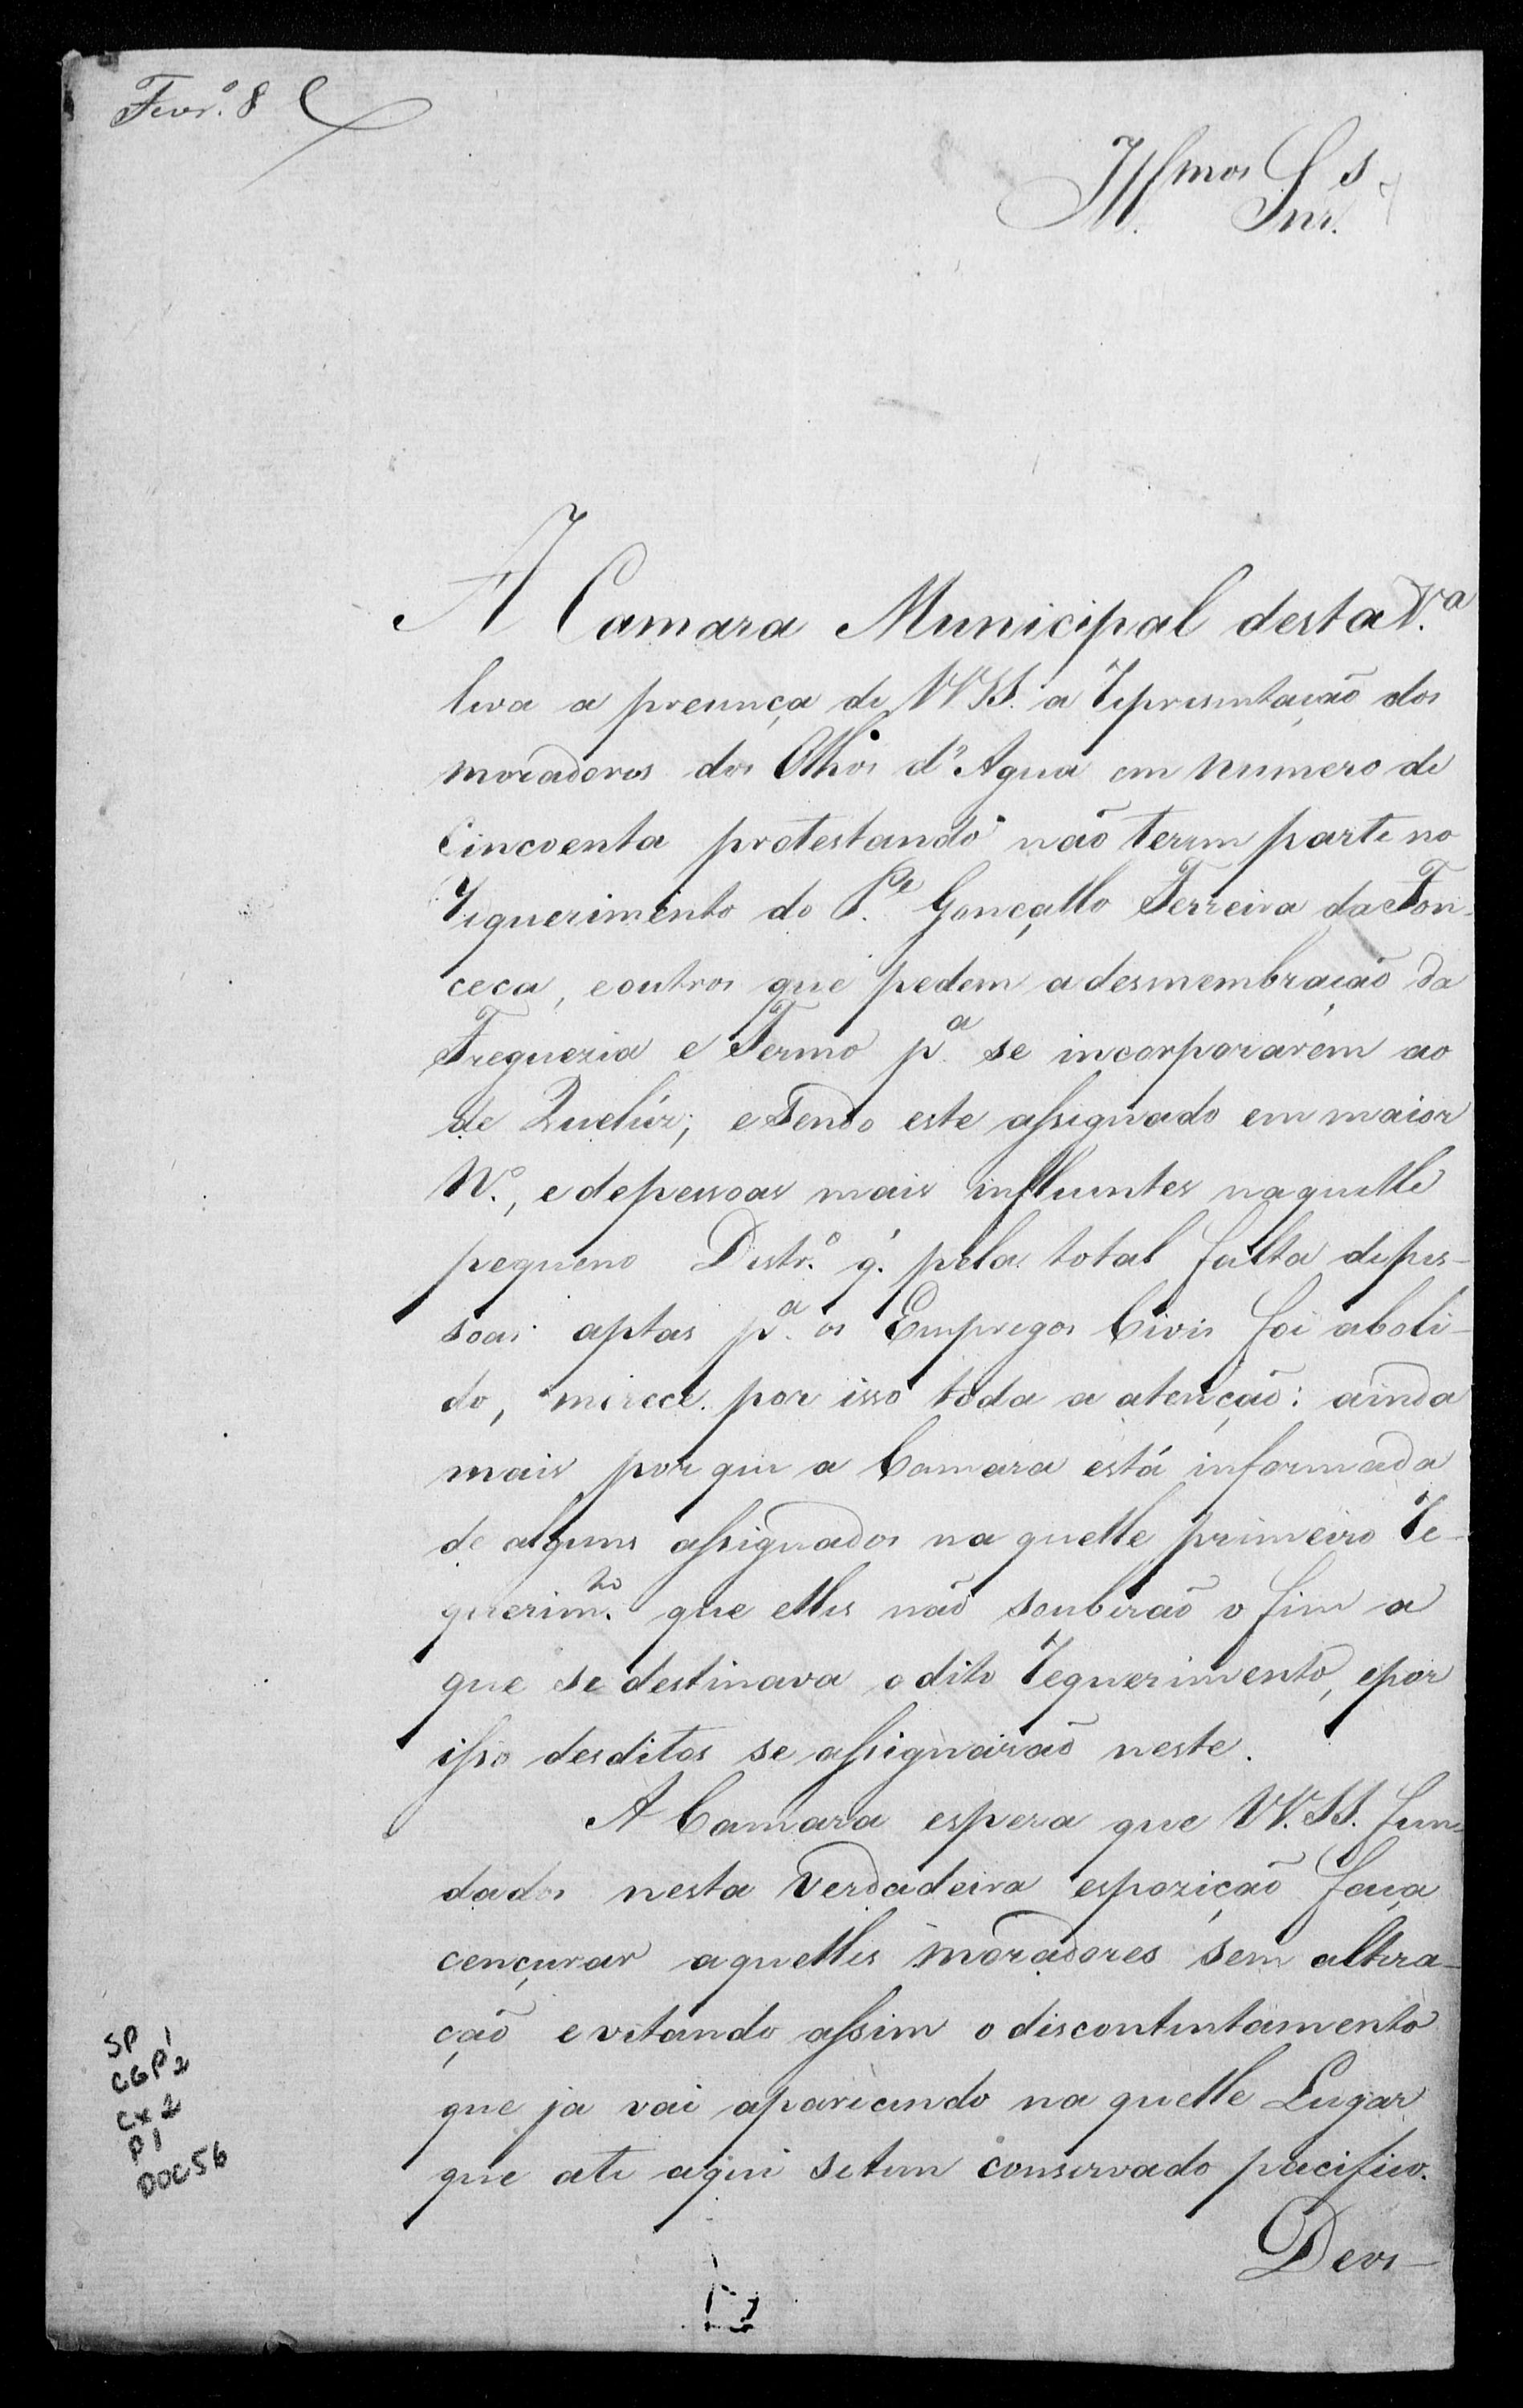 Fevr.º 8
Illmos Snrs.
A Camara Municipal desta V.ª
leva a prezença de VV SS. a Representação dos
moradores dos Olhos d'Agua em numero de
Cincoenta protestando não terem parte no
Requerimento do P.e Gonçallo Ferreira da Fon-
ceca, e outros que pedem a desmembração da
Fregueria e Termo p.ª se incorporarem ao
de Queluz; e sendo este assignado em maior
N.º, e de pessoas mais influentes naquelle
pequeno Distr.º q. pela total falta de pes-
soas aptas p.ª os Empregos Civis foi aboli-
do, merece por isso toda a atenção: ainda
mais por que a Camara está informada
de alguns assignados na quelle primeiro Re-
querim.to que elles não souberão o fim a
que se destinava o dito Requerimento, e por
isso desditos se assignarão neste.
A Camara espera que VV. SS. fun-
dados nesta verdadeira espozição faça
cençurar aquelles moradores sem altera-
ção evitando assim o discontentamento
que ja vai aparicendo na quelle Lugar
que ate aqui se tem conservado pacifico.
Deos
SP
CGP1
Cx 2
P1
DOC 56